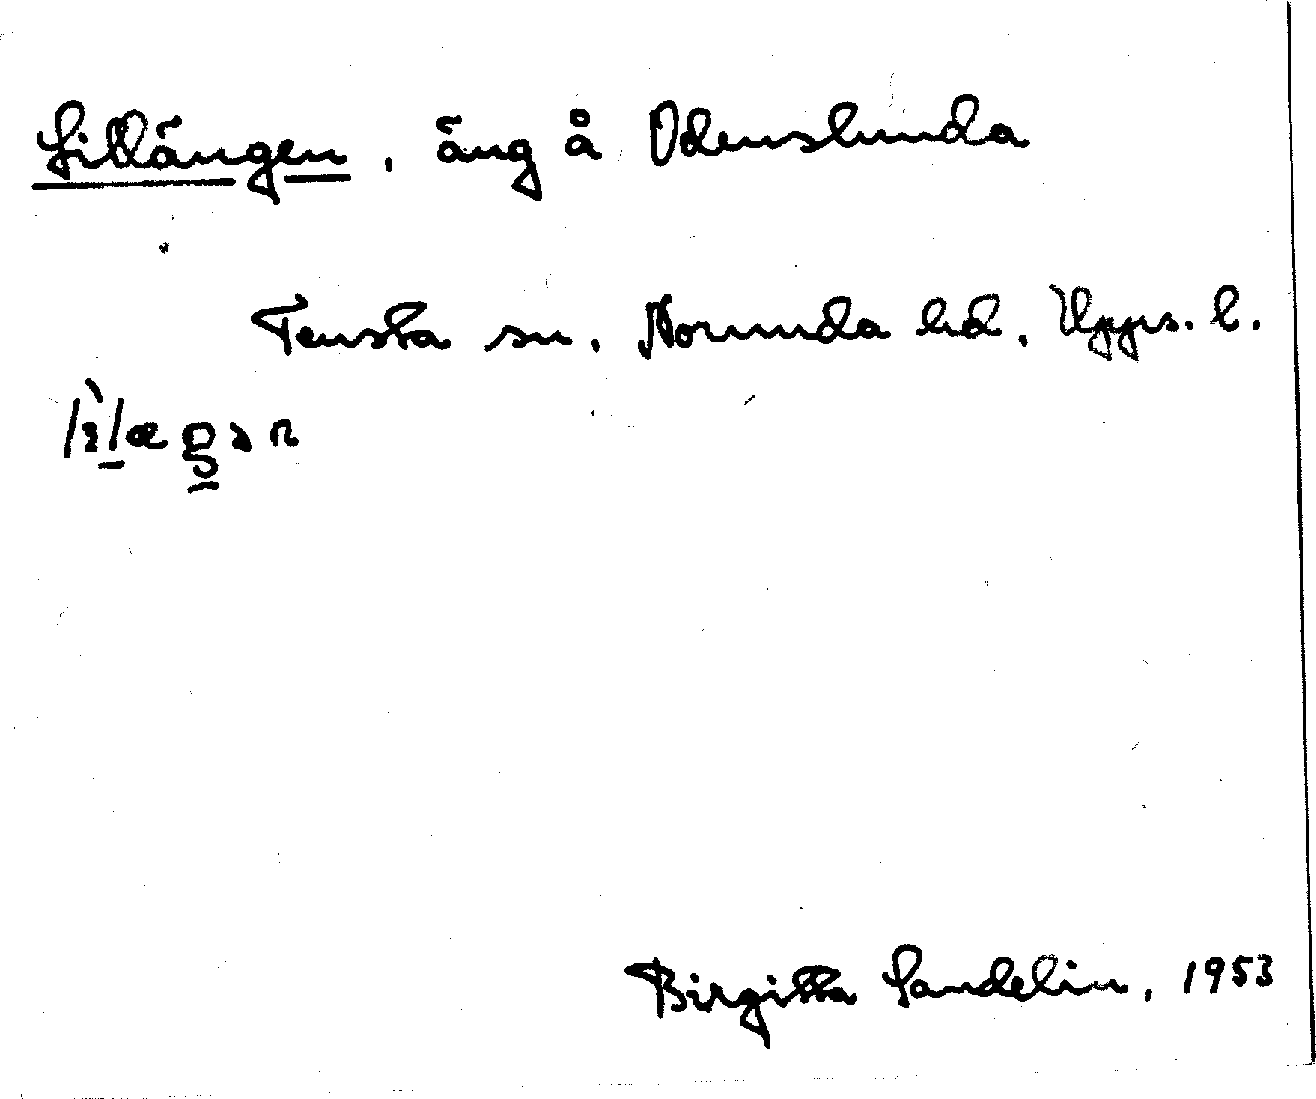 Lillängen, äng å Odenslunda
Tensta sn, Norunda hd, Upps. l.
Birgitta Sandelin, 1953